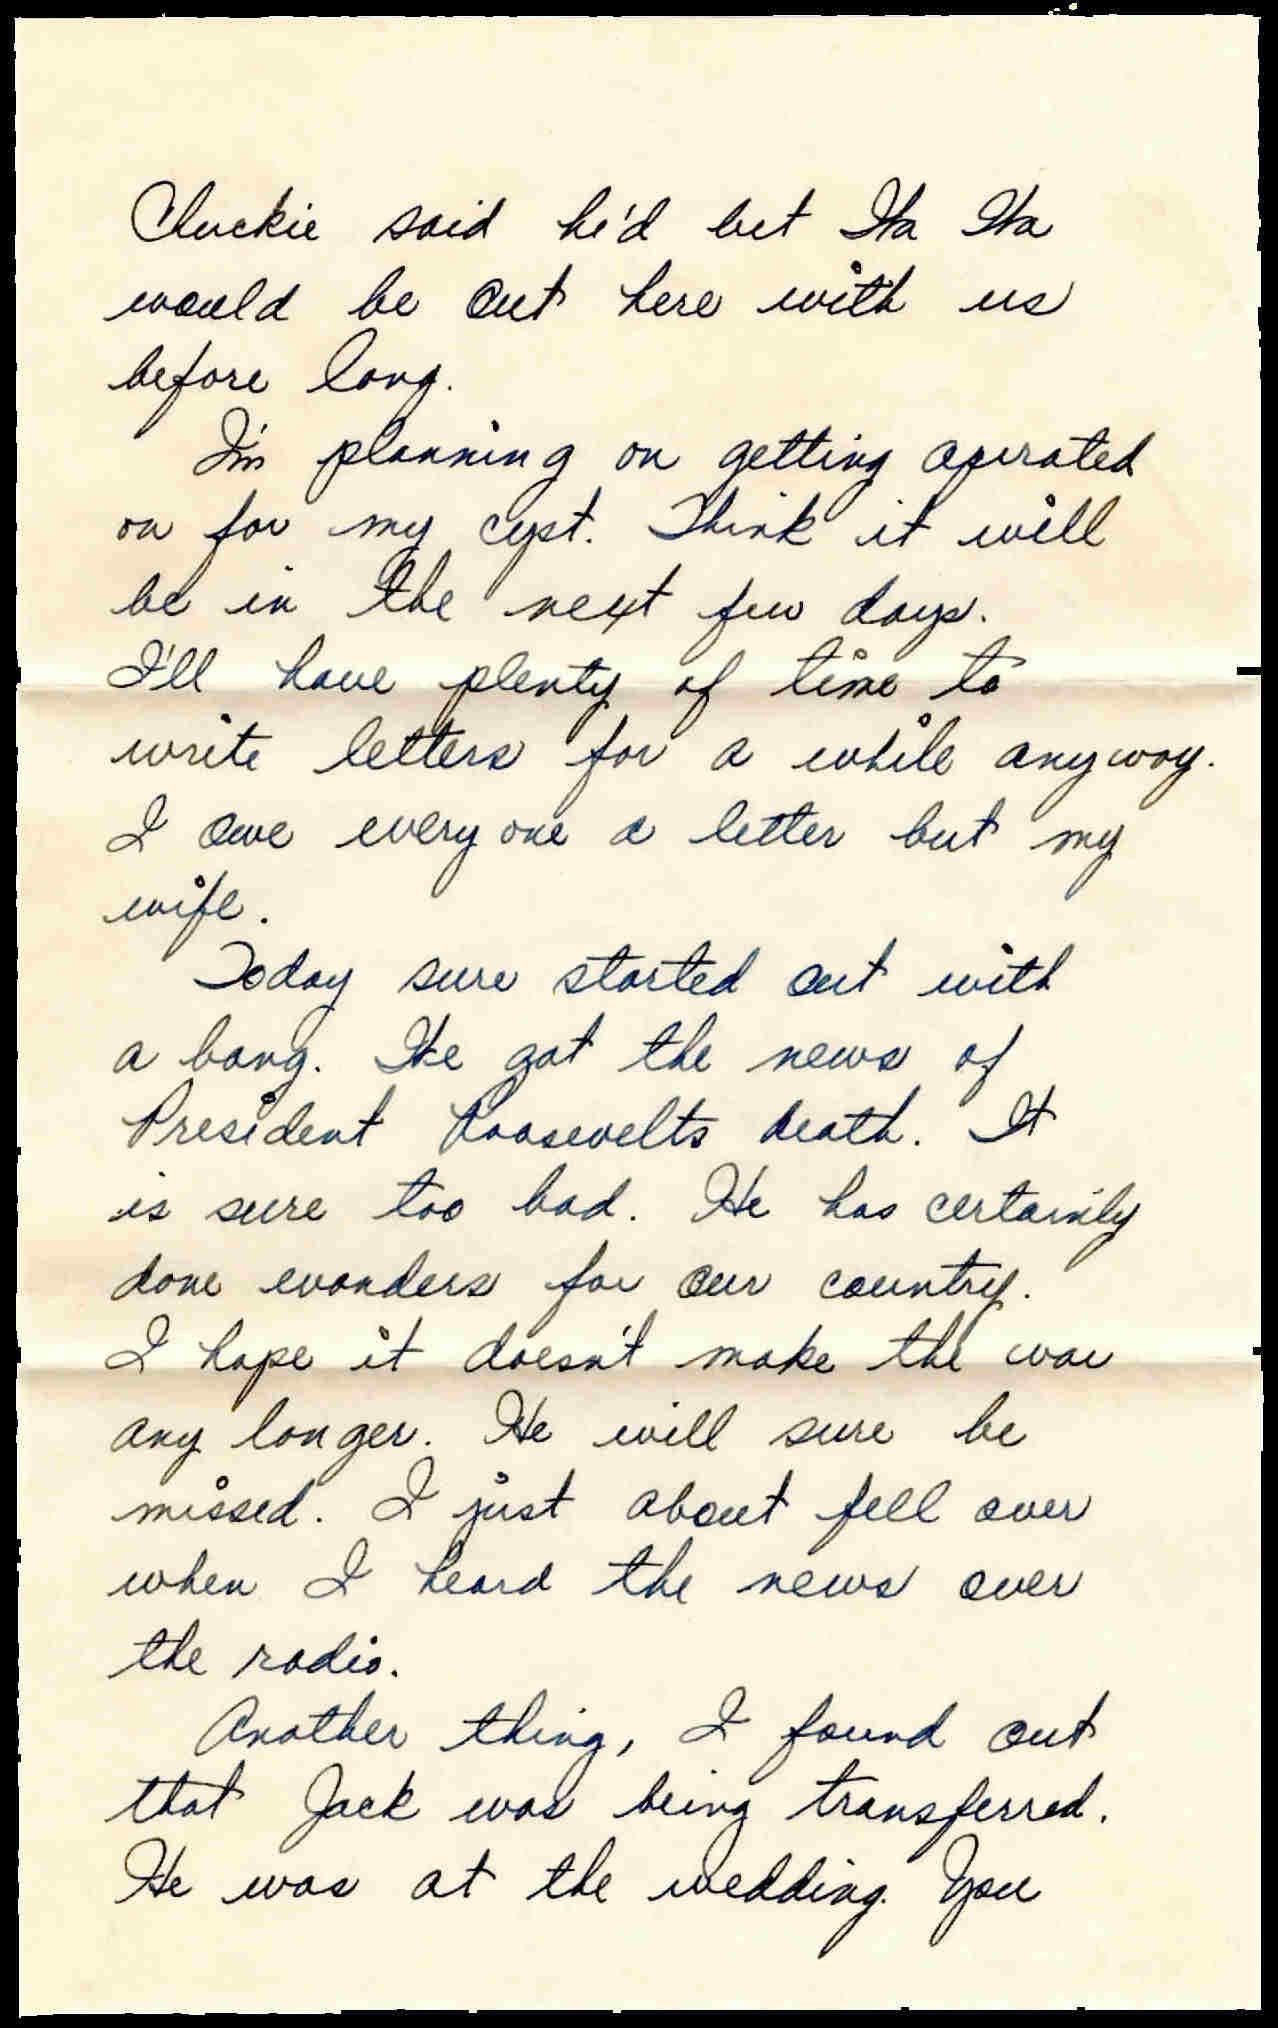 Chuckie said he'd bet Ha Ha
would be out here with us
before long.
I'm planning on getting operated
on for my cyst. Think it will
be in the next few days.
I'll have plenty of time to
write letters for a while anyway.
I owe every one a letter but my
wife.
Today sure started out with
a bang. We got the news of
President Roosevelts death. It
is sure too bad. He has certainly
done wonders for our country.
I hope it doesn't make the war
any longer. He will sure be
missed. I just about fell over
when I heard the news over
the radio.
Another thing, I found out
that Jack was being transferred.
He was at the wedding. You